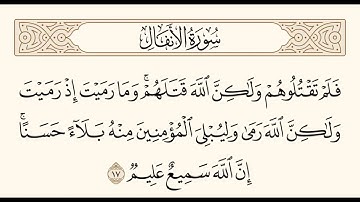 سُورَةُ الأَنفَال
فَلَمْ تَقْتُلُوهُمْ وَلَٰكِنَّ ٱللَّهَ قَتَلَهُمْ ۚ وَمَا رَمَيْتَ إِذْ رَمَيْتَ
وَلَٰكِنَّ ٱللَّهَ رَمَىٰ وَلِيُبْلِىَ ٱلْمُؤْمِنِينَ مِنْهُ بَلَآءً حَسَنًا ۚ
إِنَّ ٱللَّهَ سَمِيعٌ عَلِيمٌ ١٧